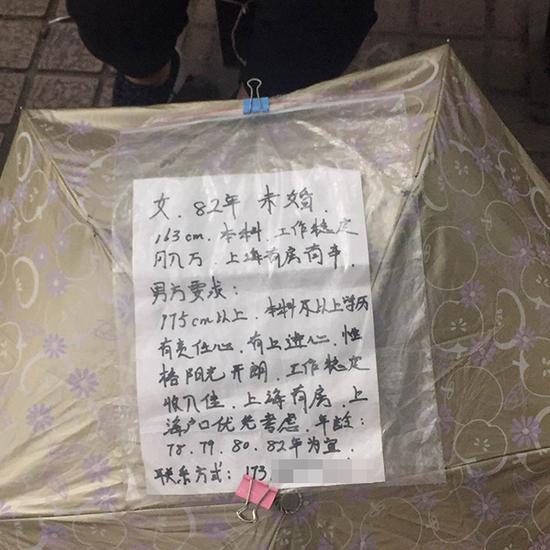 女. 82年 未婚.
163cm. 本科. 工作稳定
月入万. 上海有房有车.
男方要求:
175cm以上. 本科及以上学历
有责任心. 有上进心. 性
格阳光开朗. 工作稳定
收入佳. 上海有房. 上
海户口优先考虑. 年龄:
78. 79. 80. 82年为宜.
联系方式: 173